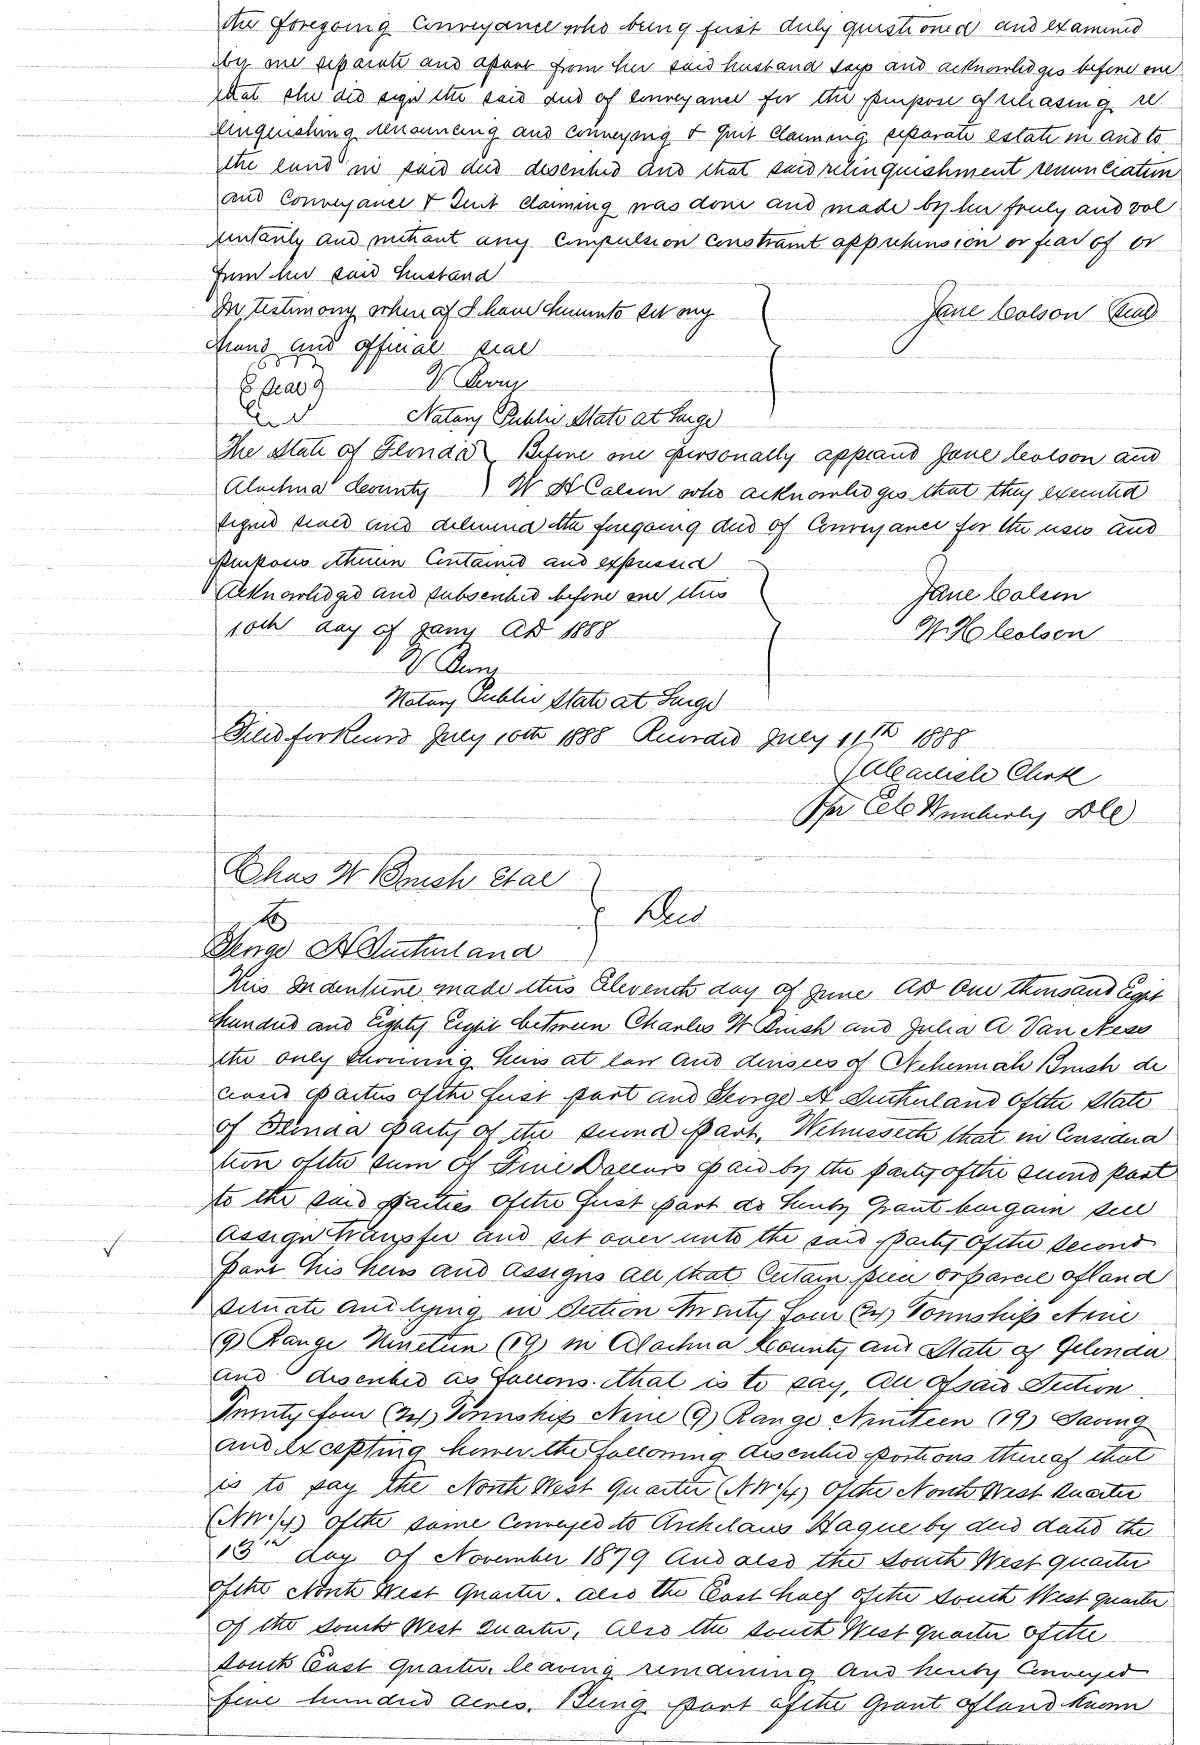 the foregoing Conveyance who being first duly questioned and examined
by me separate and apart from her said husband says and acknowledges before me
that she did sign the said deed of Conveyance for the purpose of releasing re
linquishing renouncing and conveying & quit Claiming separate estate in and to
the land in said deed described and that said relinquishment renunciation
and Conveyance & Quit Claiming was done and made by her freely and vol
untarily and without any Compulsion constraint apprehension or fear of or
from her said husband
In testimony where of I have hereunto set my
hand and official seal
Jane Colson Seal
Seal V Perry
Notary Public State at Large
The State of Florida Before me personally appeared Jane Colson and
Alachua County W H Colson who acknowledges that they executed
signed sealed and delivered the foregoing deed of Conveyance for the uses and
purposes therein Contained and expressed
Acknowledged and subscribed before me this
10th day of Jany AD 1888
Jane Colson
W H Colson
V Perry
Notary Public State at Large
Filed for Record July 10th 1888 Recorded July 11th 1888
Clerk
Per Wimberly DC
Chas W Brush et al
to Deed
George A Sutherland
This Indenture made this Eleventh day of June AD One thousand Eight
hundred and Eighty Eight between Charles W Brush and Julia A Van Ness
the only surviving heirs at law and devisees of Nehemiah Brush de
ceased parties of the first part and George A Sutherland of the State
of Florida party of the second part, Witnesseth that in Considera
tion of the sum of Five Dollars paid by the party of the second part
to the said parties of the first part do hereby grant bargain sell
assign transfer and set over unto the said party of the second
part his heirs and assigns all that Certain piece or parcel of land
situate and lying in Section Twenty four (24) Township Nine
(9) Range Nineteen (19) in Alachua County and State of Florida
and described as follows. that is to say, All of said Section
Twenty four (24) Township Nine (9) Range Nineteen (19) Saving
and excepting however the following described portions thereof that
is to say the North West quarter (NW 1/4) of the North West quarter
(NW 1/4) of the same Conveyed to Archelaus Hague by deed dated the
13th day of November 1879 And also the South West quarter
of the North West Quarter. also the East half of the South West quarter
of the South West Quarter, Also the South West quarter of the
South East quarter. leaving remaining and hereby Conveyed
five hundred acres. Being part of the Grant of land known